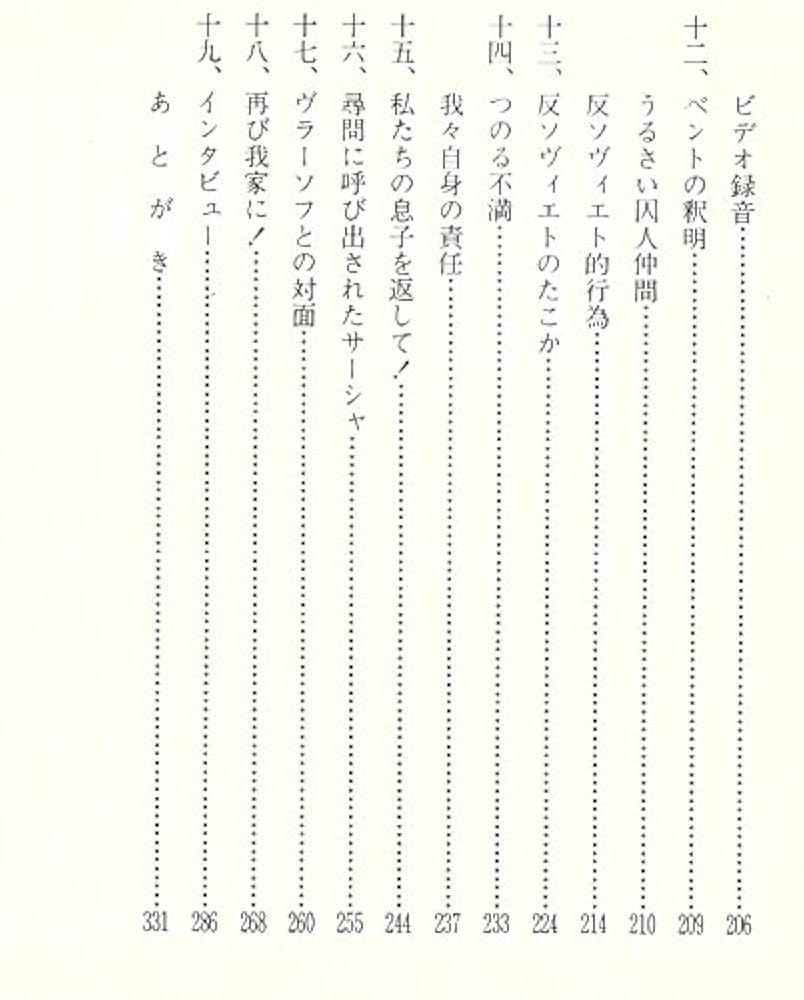 ビデオ録音……206
十二、ベントの釈明……209
うるさい囚人仲間……210
反ソヴィエト的行為……214
十三、反ソヴィエトのたこか……224
十四、つのる不満……233
我々自身の責任……237
十五、私たちの息子を返して！……244
十六、尋問に呼び出されたサーシャ……255
十七、ヴラーソフとの対面……260
十八、再び我家に！……268
十九、インタビュー……286
あとがき……331